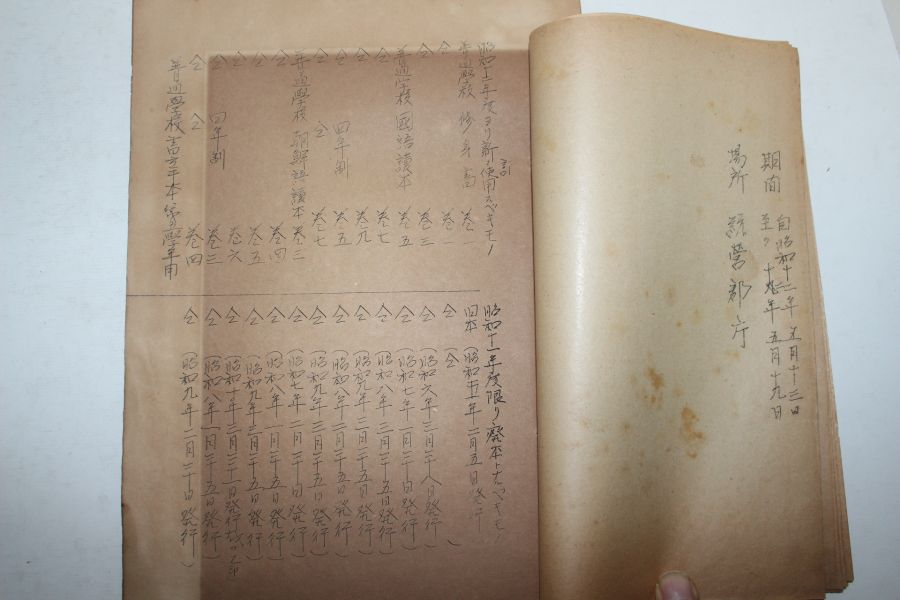 期間 自昭和十二年五月十三日
至〃十九年五月十九日
場所 経営部庁
昭和十二年度ヨリ新ニ使用スベキモノ
普通學校 修身書 巻一
仝 巻一
仝 巻三
普通学校 國語讀本 巻五
仝 巻七
仝 巻九
仝 四年制 巻五
仝 仝 巻七
普通學校 朝鮮語讀本 巻三
仝 巻四
仝 巻五
仝 巻六
仝 四年制 巻三
仝 仝 巻四
普通學校書方手本 第四學年用
昭和十一年度限リ廢本トスベキモノ
旧本 (昭和五年二月五日発行)
仝 (仝)
仝 (昭和六年三月二十八日発行)
仝 (昭和七年一月二十五日発行)
仝 (昭和八年三月二十五日発行)
仝 (昭和九年三月二十五日発行)
仝 (昭和八年三月二十五日発行)
仝 (昭和九年三月二十五日発行)
仝 (昭和七年二月二十日発行)
仝 (昭和八年一月二十五日発行)
仝 (昭和九年三月二十五日発行)
仝 (昭和十年三月三十一日発行
仝 (昭和八年一月二十五日発行)
仝 (昭和九年二月二十日発行)